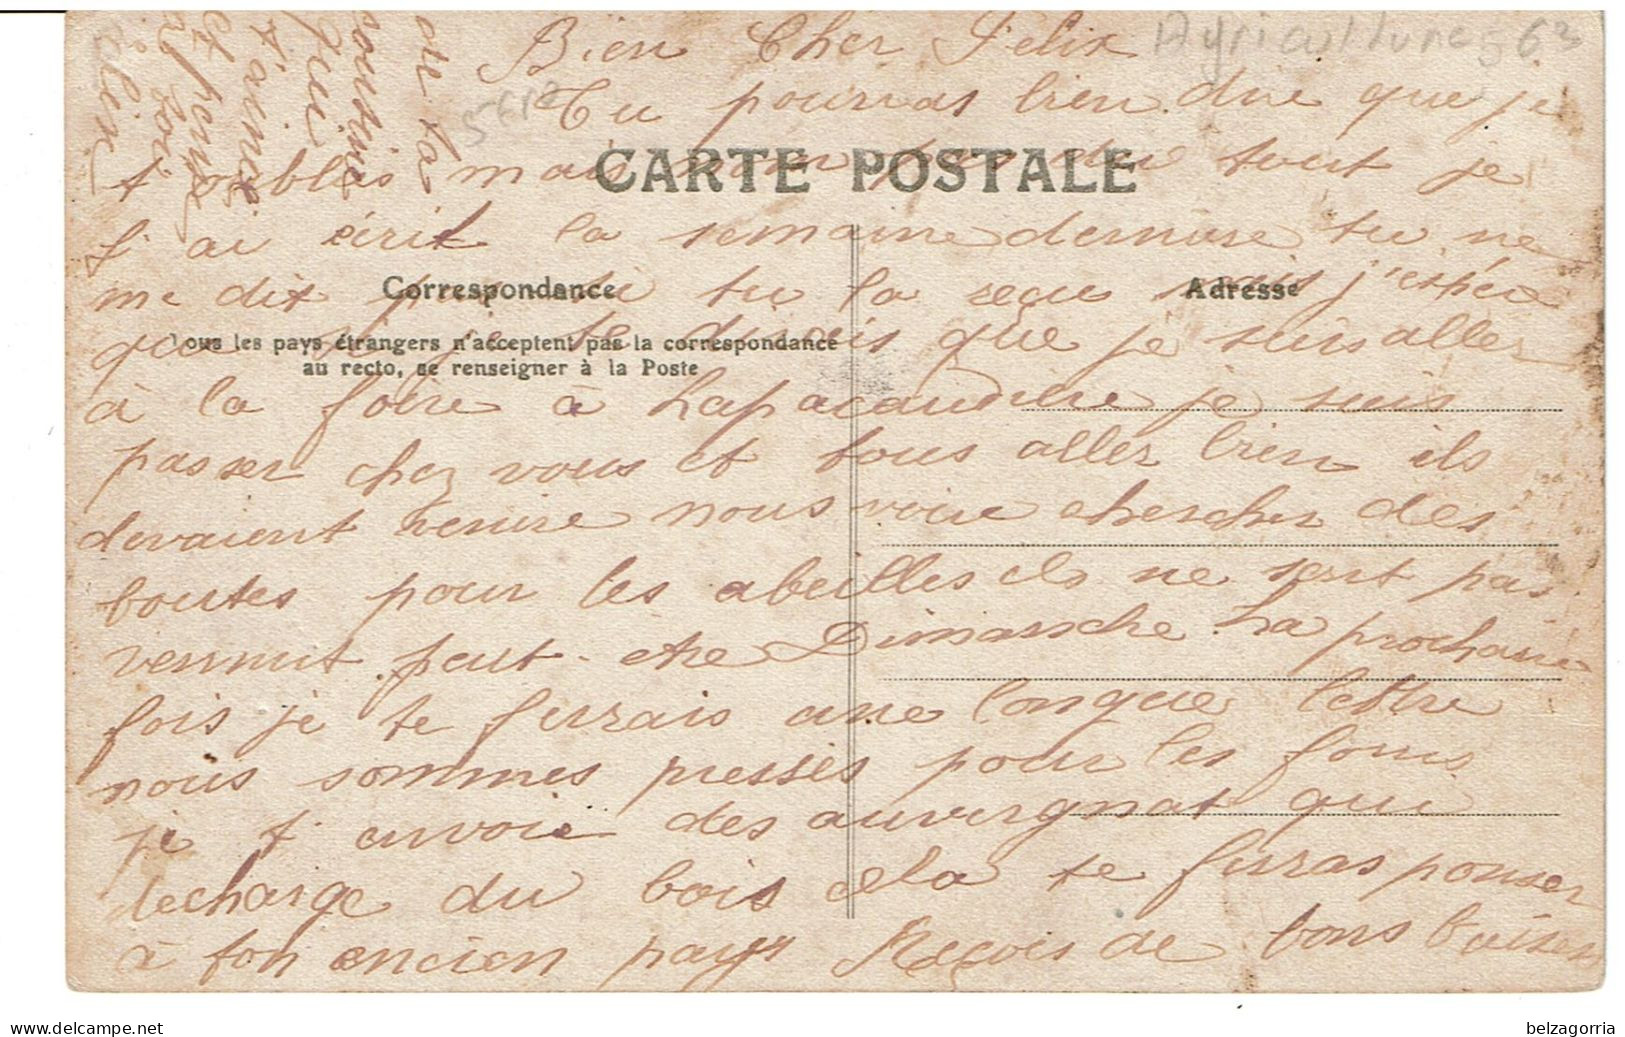 Bien Cher Félix
Agricultures 63
Tu pourras bien dire que je
t oublis mais non pas du tout je
CARTE POSTALE
t' ai écrit la semaine dernière tu ne
me dit pas si tu la reçu mais j'espére
Correspondance
Adresse
que si je te dirais que je suis aller
Tous les pays étrangers n'acceptent pas la correspondance
au recto, se renseigner à la Poste
à la foire à Lapacaudière je suis
passer chez vous et tous aller bien ils
devaient venire nous voire chercher des
boutes pour les abeilles ils ne sont pas
vennut peut-etre Dimansche La prochaine
fois je te ferrais une longue lettre
nous sommes pressés pour les foins
je t' envoie des auvergnat qui
decharge du bois cela te ferras penser
à ton ancien pays Reçois de bons baisers
de ta
cousine
qui
t'aime
et pense
à toi
delix
belzagorria